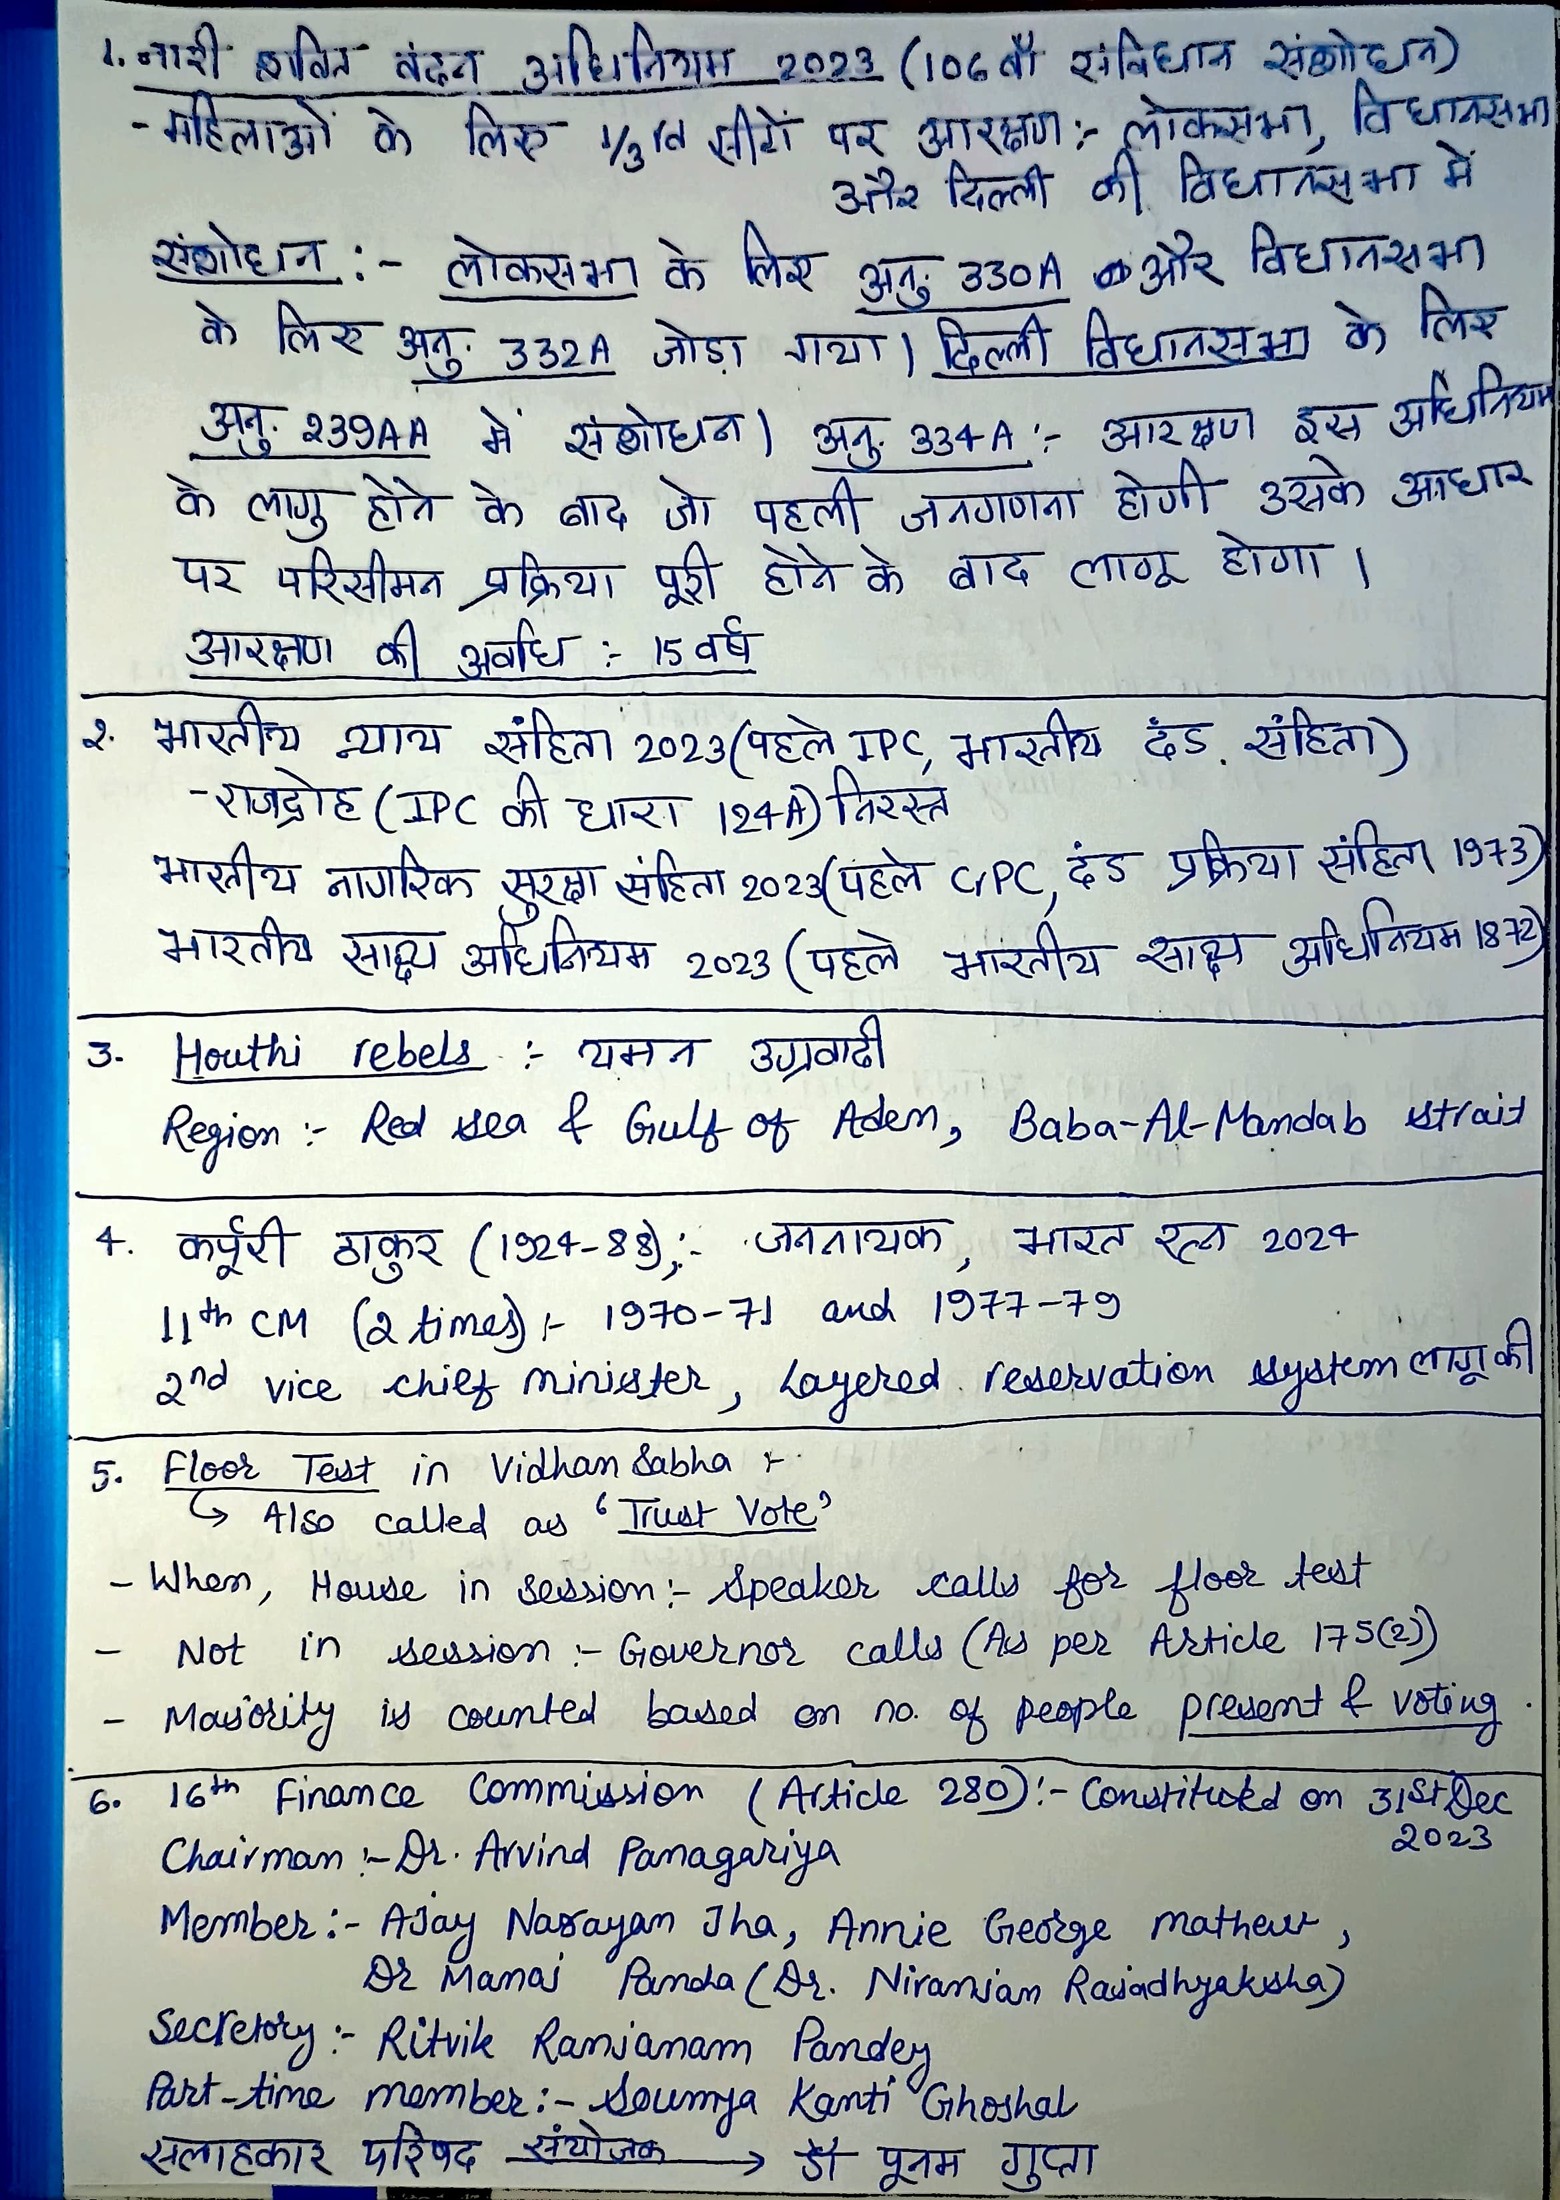 1. नारी शक्ति वंदन अधिनियम 2023 (106 वाँ संविधान संशोधन)
- महिलाओं के लिए 1/3rd सीटों पर आरक्षण :- लोकसभा, विधानसभा
और दिल्ली की विधानसभा में
संशोधन :- लोकसभा के लिए अनु. 330A और विधानसभा
के लिए अनु. 332A जोड़ा गया। दिल्ली विधानसभा के लिए
अनु. 239AA में संशोधन। अनु. 334A :- आरक्षण इस अधिनियम
के लागु होने के बाद जो पहली जनगणना होगी उसके आधार
पर परिसीमन प्रक्रिया पूरी होने के बाद लागू होगा।
आरक्षण की अवधि :- 15 वर्ष
2. भारतीय न्याय संहिता 2023 (पहले IPC, भारतीय दंड संहिता)
- राजद्रोह (IPC की धारा 124A) निरस्त
भारतीय नागरिक सुरक्षा संहिता 2023 (पहले CrPC, दंड प्रक्रिया संहिता 1973)
भारतीय साक्ष्य अधिनियम 2023 (पहले भारतीय साक्ष्य अधिनियम 1872)
3. Houthi rebels :- यमन उग्रवादी
Region :- Red sea & Gulf of Aden, Baba-Al-Mandab strait
4. कर्पूरी ठाकुर (1924-88) :- जननायक, भारत रत्न 2024
11th CM (2 times) :- 1970-71 and 1977-79
2nd vice chief minister, Layered reservation system लागू की
5. Floor Test in Vidhan Sabha :-
↳ Also called as 'Trust Vote'
- When, House in session :- Speaker calls for floor test
- Not in session :- Governor calls (As per Article 175(2))
- Majority is counted based on no. of people present & voting.
6. 16th Finance Commission (Article 280) :- Constituted on 31st Dec
2023
Chairman :- Dr. Arvind Panagariya
Member :- Ajay Narayan Jha, Annie George Mathew,
Dr Manoj Panda (Dr. Niranjan Rajadhyaksha)
Secretory :- Ritvik Ranjanam Pandey
Part-time member :- Soumya Kanti Ghoshal
सलाहकार परिषद संयोजक → डॉ पूनम गुप्ता